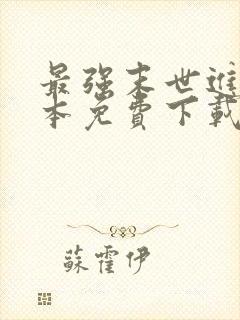 最强末世進
本免費下載
蘇霍伊